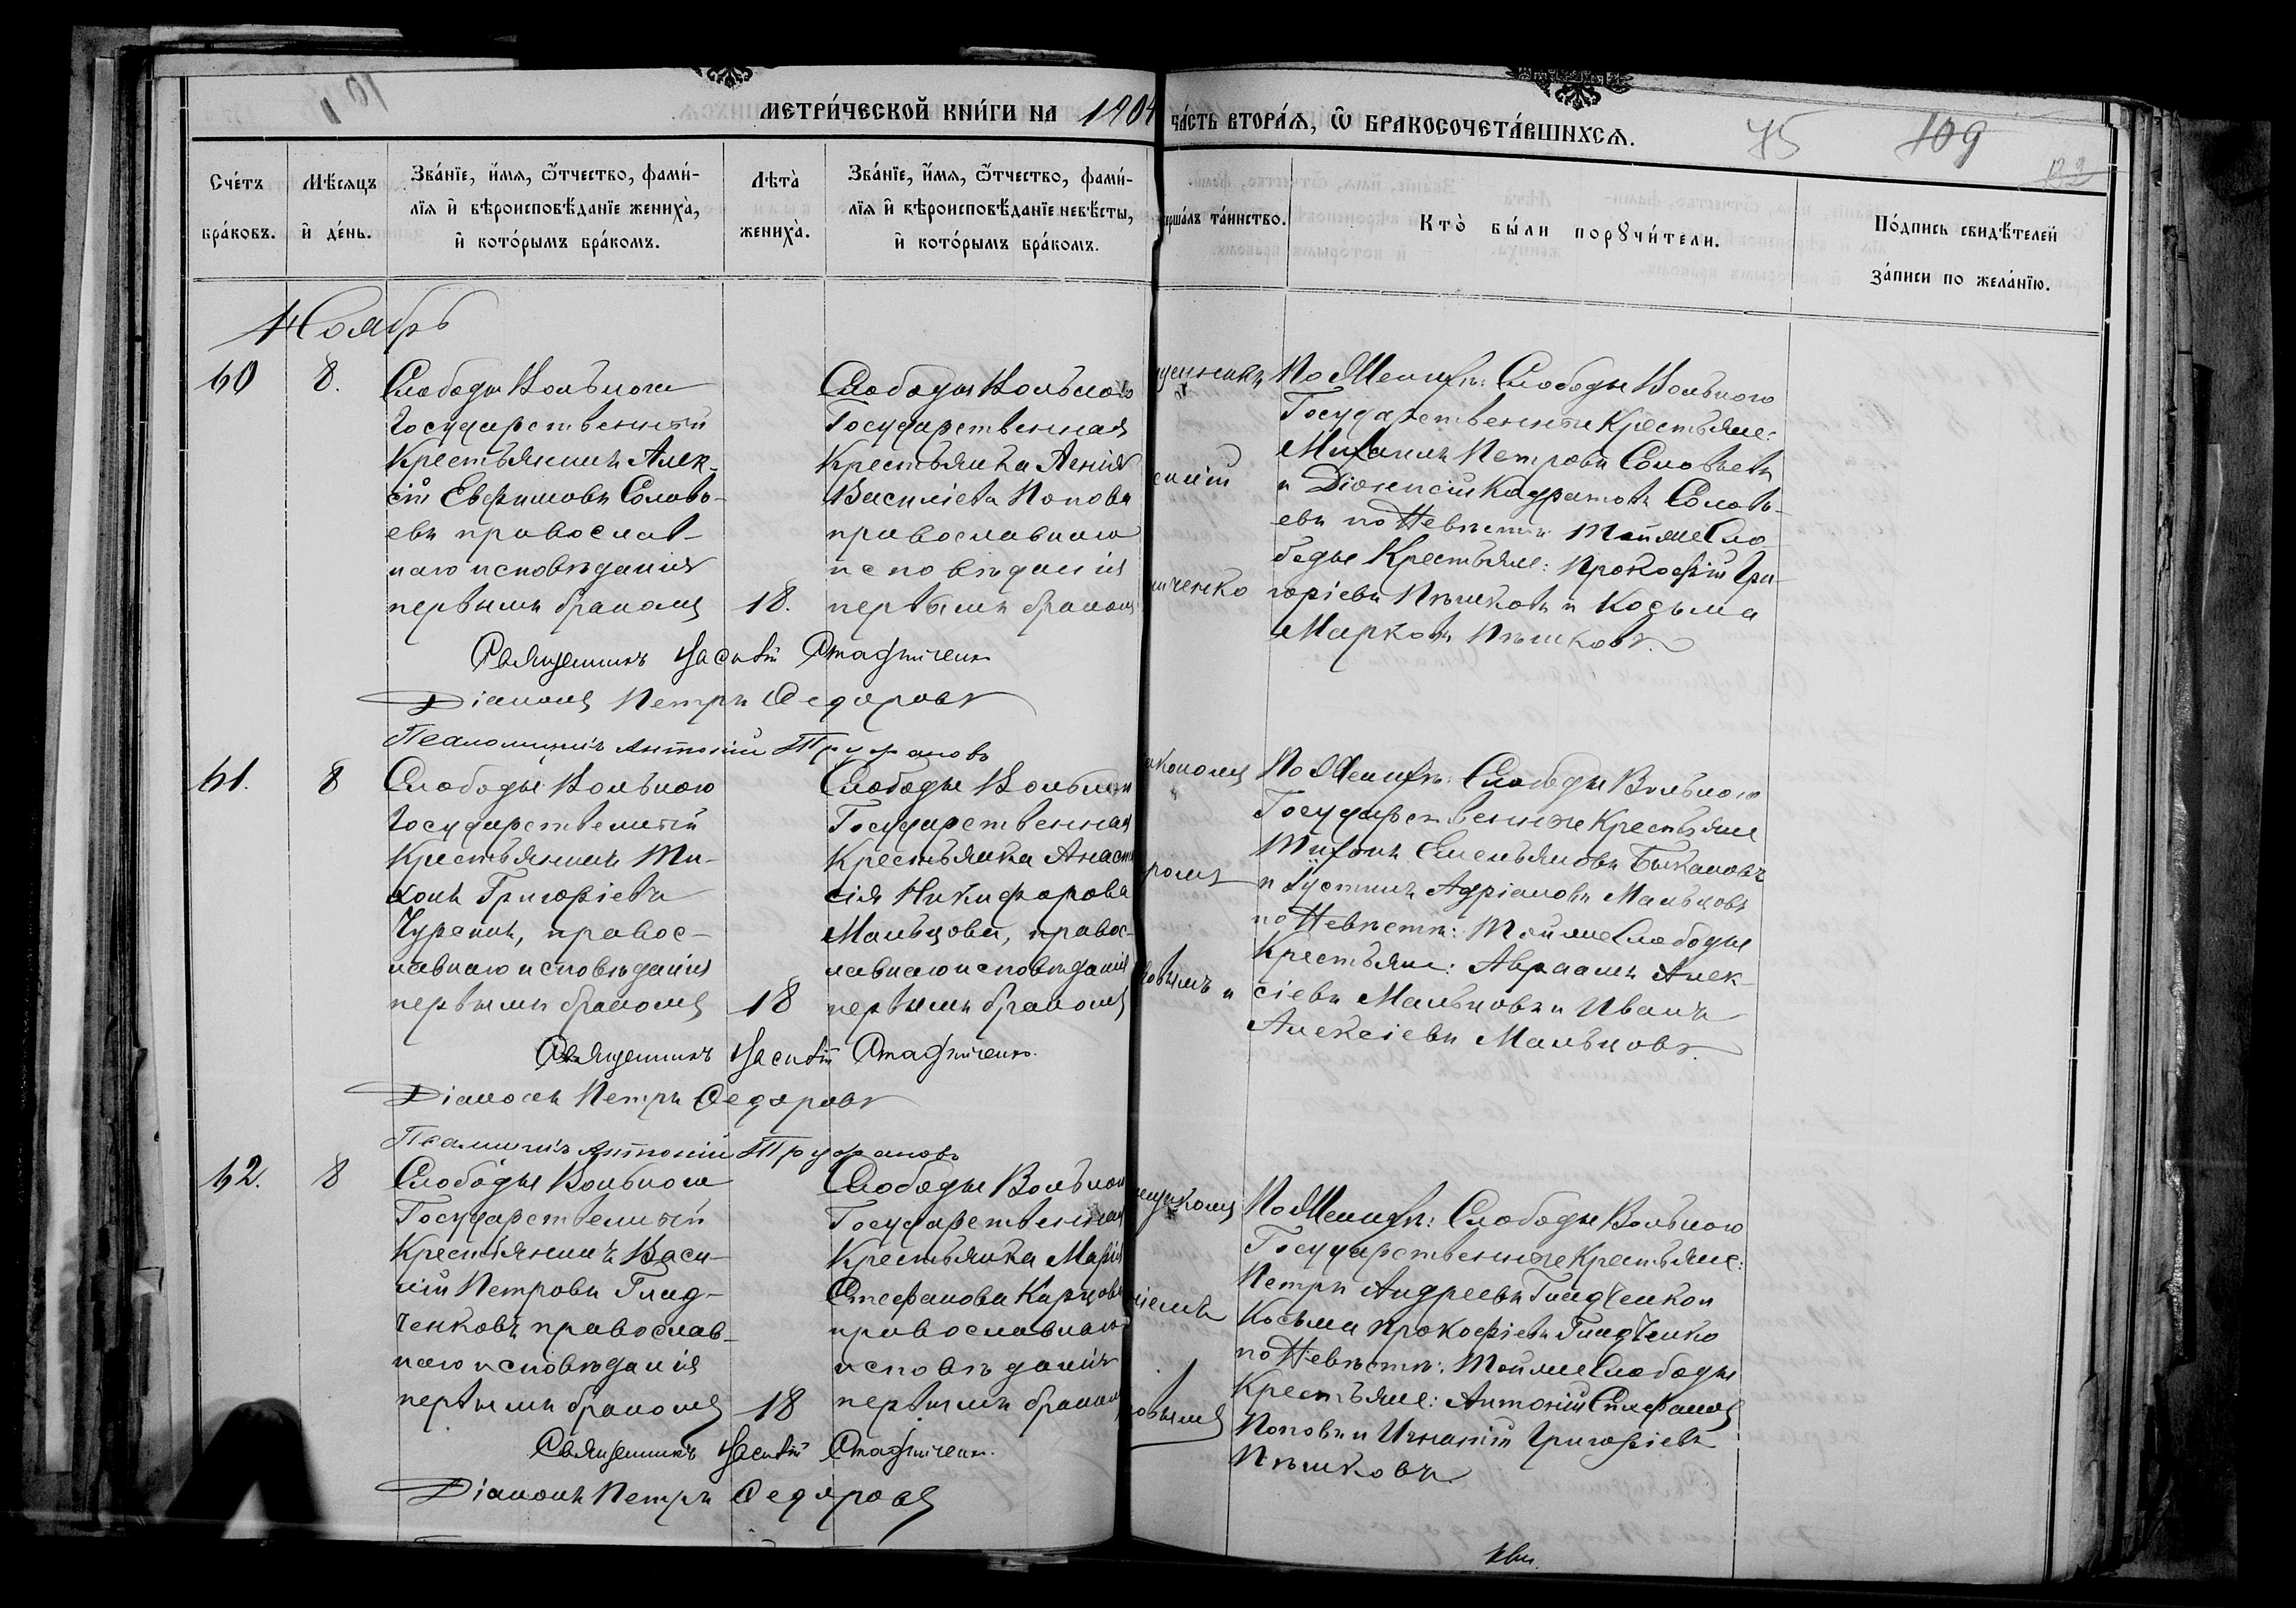 МЕТРИ́ЧЕСКОЙ КНИ́ГИ НА 1904
ЧА́СТЬ ВТОРА́Я, Ѿ БРАКОСОЧЕТА́ВШИХСЯ.
75
109
Сче́тъ
бра́ковъ.
Мѣ́сяцъ
и҆ де́нь.
Зва́нїе, и҆́мя, ѻ҆́тчество, фами́-
лїя и҆ вѣроисповѣ́данїе жениха̀,
и҆ кото́рымъ бра́комъ.
Лѣта̀
жениха̀.
Зва́нїе, и҆́мя, ѻ҆́тчество, фами́-
лїя и҆ вѣроисповѣ́данїе невѣ́сты,
и҆ кото́рымъ бра́комъ.
ерша́лъ та́инство.
Кто̀ бы́ли порꙋчи́тели.
По́дпись свидѣ́телей
за́писи по жела́нїю.
Ноябрь
60
8.
Слободы Вольного
Государственный
Крестьянинъ Алек-
сій Евфимовъ Соловь-
евъ православ-
наго исповѣданія
первымъ бракомъ
18.
Слободы Вольного
Государственная
Крестьянка
Василіева Попова
православнаго
исповѣданія
первымъ бракомъ
По Женихѣ: Слободы Вольного
Государственные Крестьяне:
Михаилъ Петровъ Соловьевъ
и Діонисій Кодратовъ Соловь-
евъ по Невѣстѣ: Той же Сло
боды Крестьяне: Прокофій Гри-
горіевъ Пѣшковъ и Косьма
Марковъ Пѣшковъ.
Священникъ
Діаконъ Петръ Федоровъ
Псаломщикъ Антоній Труфановъ
61.
8
Слободы Вольного
Государственный
Крестьянинъ Ти-
хонъ Григоріевъ
Чурекинъ, правос-
лавнаго исповѣданія
первымъ бракомъ
18
Слободы Вольного
Государственная
Крестьянка Анаста
сія Никифорова
Мальцова, правос-
лавнаго исповѣданія
первымъ бракомъ
По Женихѣ: Слободы Вольного
Государственные Крестьяне
Тихонъ Емельяновъ Быкановъ
и Іустинъ Адріановъ Мальцовъ
по Невѣстѣ: Той же Слободы
Крестьяне: Авраамъ Алек-
сіевъ Мальцовъ и Иванъ
Алексіевъ Мальцовъ.
Священникъ
Діаконъ Петръ Федоровъ
Псаломщикъ Антоній Труфановъ
62.
8
Слободы Вольного
Государственный
Крестьянинъ Васи-
лій Петровъ Глад-
ченковъ православ-
наго исповѣданія
первымъ бракомъ
18
Слободы Вольного
Государственная
Крестьянка Марія
Стефанова Карцова
православнаго
исповѣданія
первымъ бракомъ
По Женихѣ: Слободы Вольного
Государственные Крестьяне:
Петръ Андреевъ Гладченко и
Косьма Прокофіевъ Гладченко
по Невѣстѣ: Той же Слободы
Крестьяне: Антоній Стефановъ
Поповъ и Игнатій Григоріевъ
Пѣшковъ.
Священникъ
Діаконъ Петръ Федоровъ